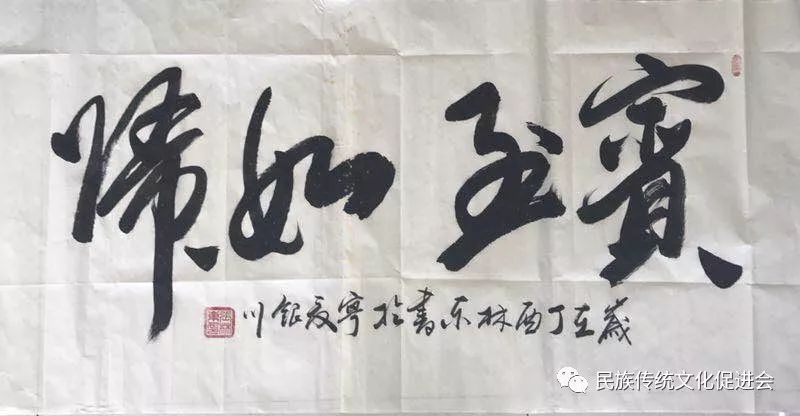 賓至如歸
歲在丁酉林东書於寧夏銀川
民族传统文化促进会